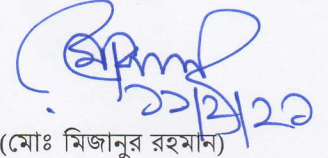 ১১/২/২১
(মোঃ মিজানুর রহমান)